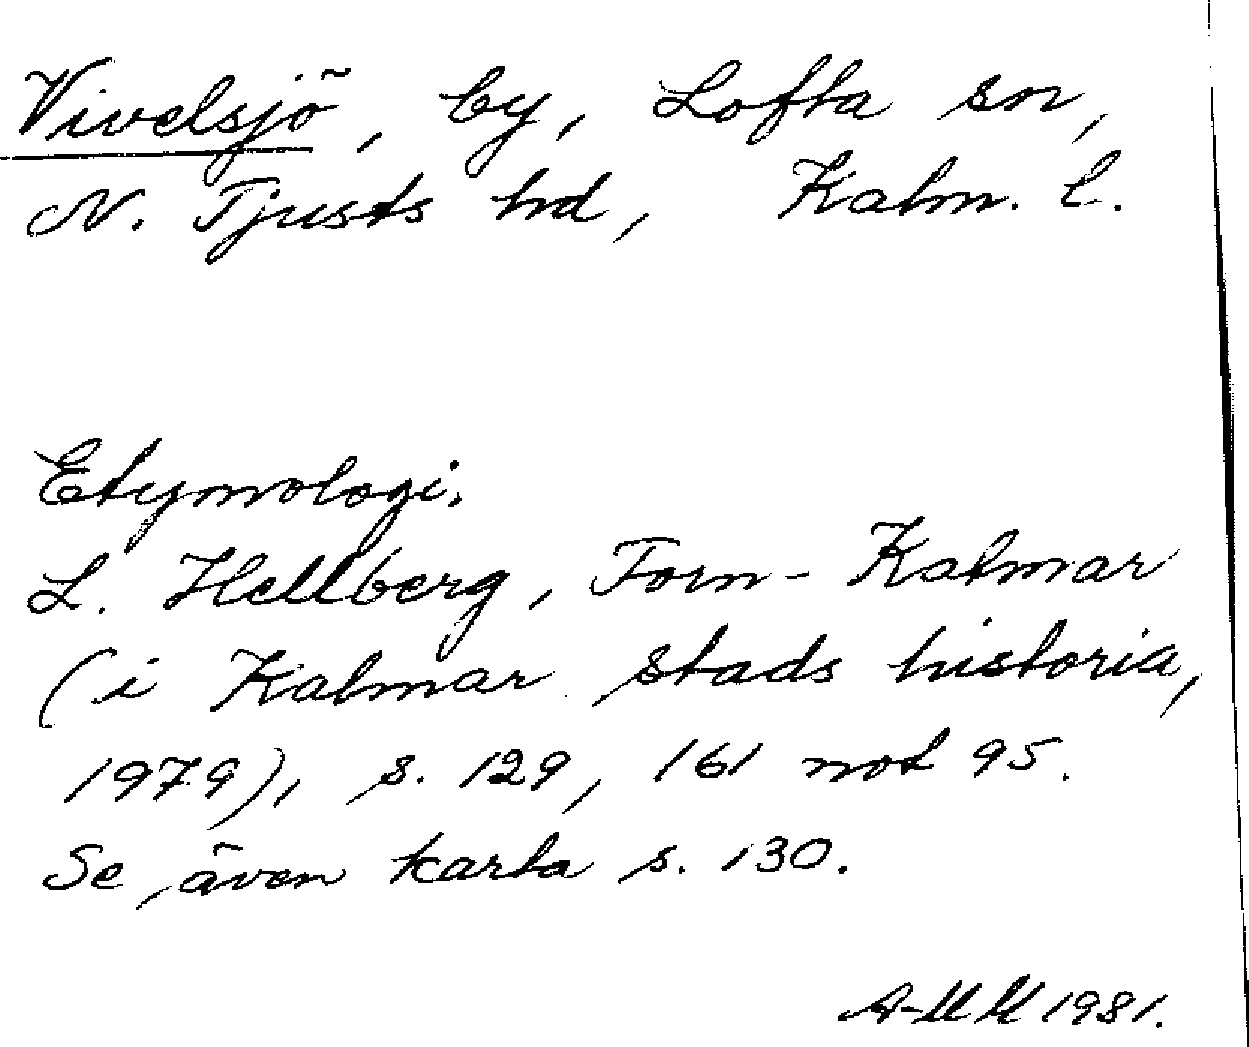 Vivelsjö, by, Lofta sn,
N. Tjusts hd, Kalm. l.
Etymologi.
L. Hellberg, Forn-Kalmar
(i Kalmar stads historia,
1979), s. 129, 161 not 95.
Se även karta s. 130.
1981.